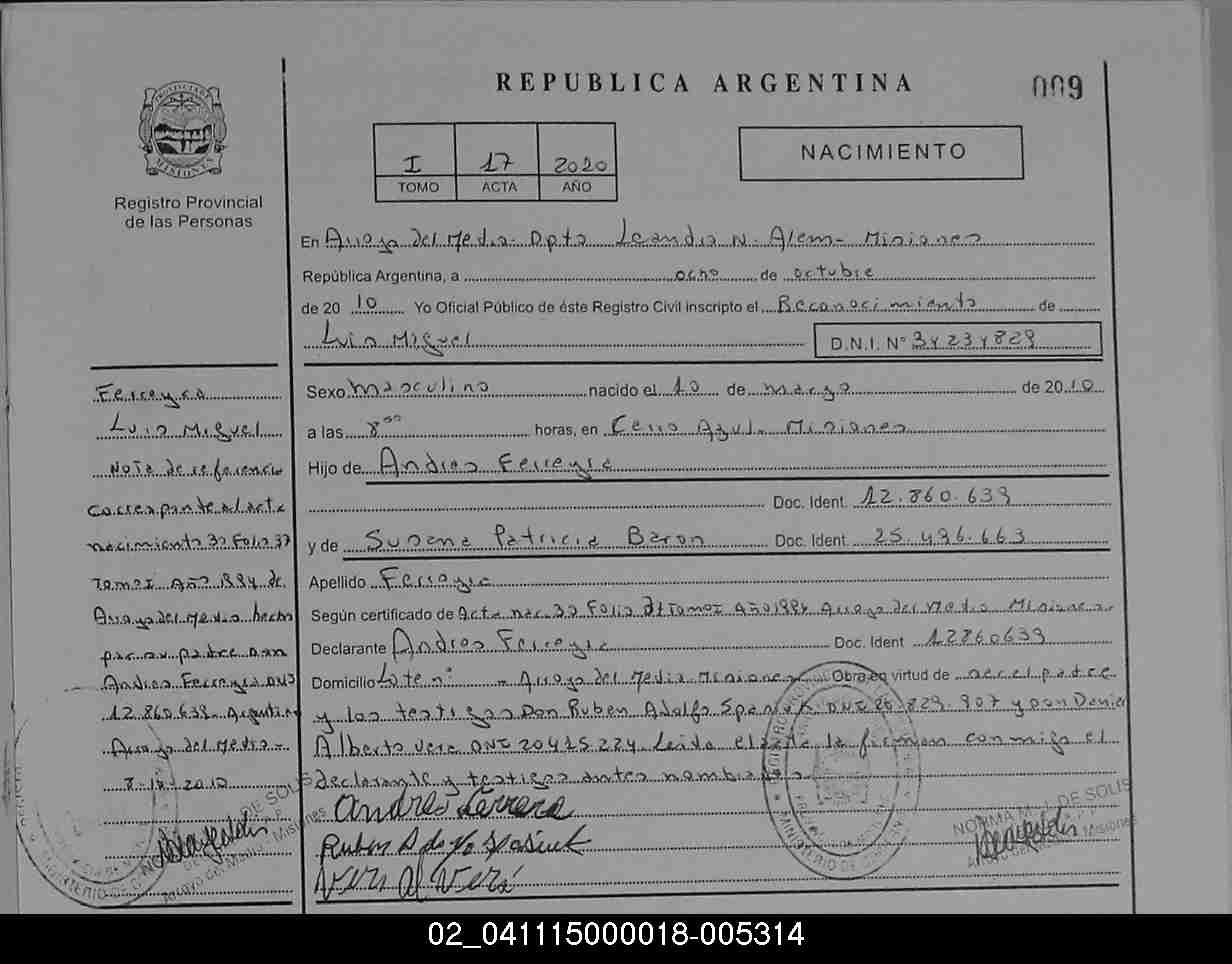 REPUBLICA ARGENTINA
009
PROVINCIA DE MISIONES
Registro Provincial
de las Personas
I 17 2020
TOMO ACTA AÑO
NACIMIENTO
En Arroyo del Medio - Dpto Leandro N. Alem - Misiones
República Argentina, a ocho de octubre
de 2010 Yo Oficial Público de éste Registro Civil inscripto el Reconocimiento de
Luis Miguel
D.N.I. N° 34234829
Sexo Masculino nacido el 10 de marzo de 2010
a las 8 horas, en Cerro Azul - Misiones
Hijo de Andres Ferreyra
Doc. Ident. 12.860.639
y de Susana Patricia Baron Doc. Ident. 25.496.663
Apellido Ferreyra
Según certificado de Acta nac. 30 Folio Tomo I Año 1994 Arroyo del Medio Misiones.
Declarante Andres Ferreyra Doc. Ident 12860639
Domicilio Lote n° - Arroyo del Medio Misiones Obra en virtud de ser el padre
y los testigos Don Ruben Adolfo Spasiuk DNI 26.829.907 y Don Daniel
Alberto Vera DNI 20475.224 Leida el acta la firman conmigo el
declarante y testigos antes nombrados
Andres Ferreyra
Ruben Adolfo Spasiuk
Vera
Ferreyra
Luis Miguel
Nota de referencia
Corresponde al acta
nacimiento 30 Folio 37
Tomo I Año 1994 de
Arroyo del Medio hecho
por su padre Don
Andres Ferreyra DNI
12.860.639 - Argentino
Arroyo del Medio -
8-10-2010
DE SOLIS
Arroyo del Medio - Misiones
NORMA M. DE SOLIS
Misiones
02_041115000018-005314